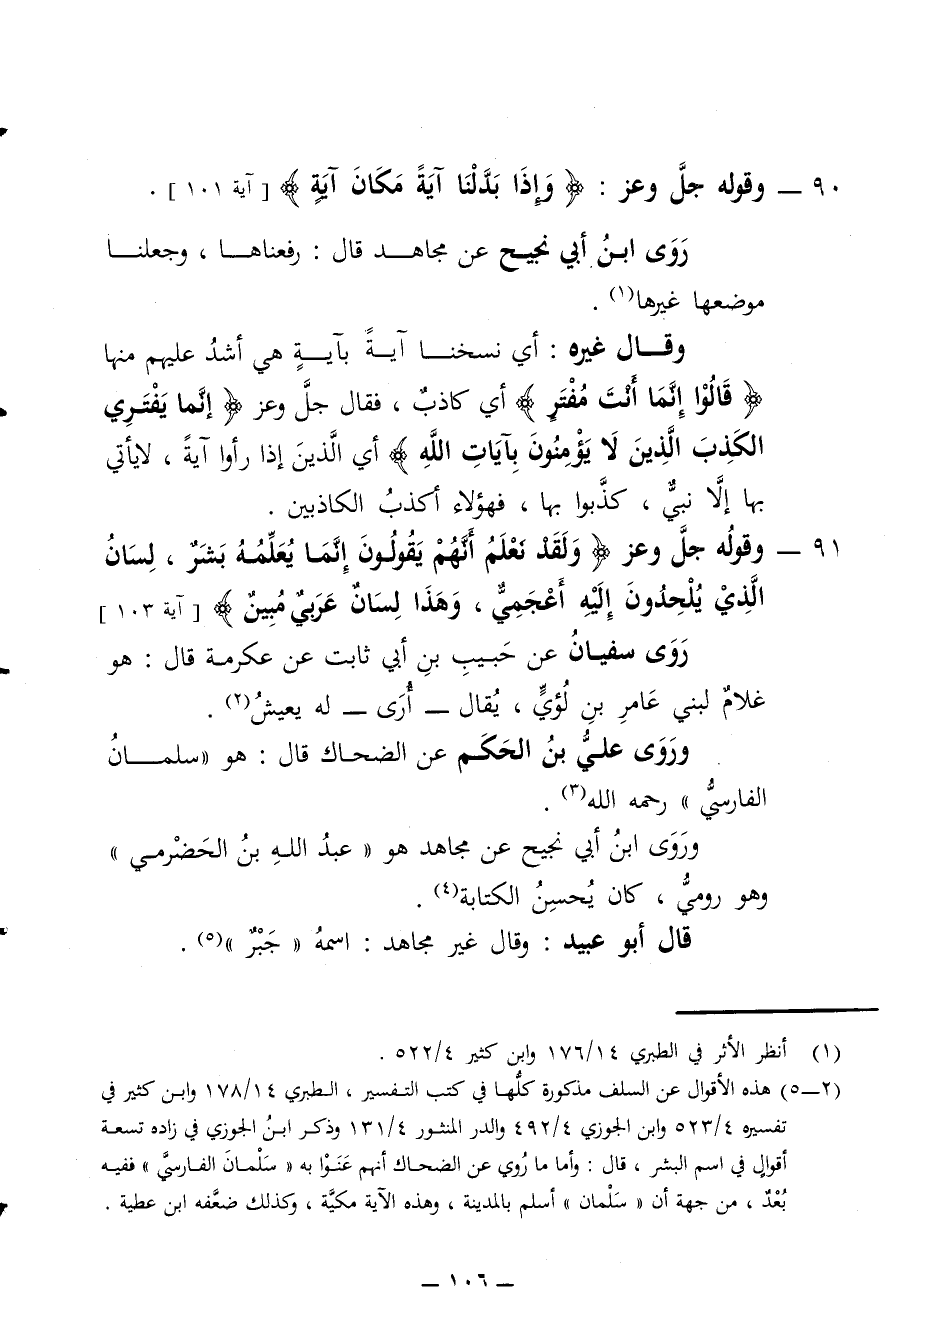 ٩٠ ـ وقوله جلَّ وعز : ﴿ وَإِذَا بَدَّلْنَا آيَةً مَكَانَ آيَةٍ ﴾ [ آية ١٠١ ] .
رَوَى ابنُ أبي نجيح عن مجاهد قال : رفعناها ، وجعلنا
موضعها غيرها(١) .
وقال غيره : أي نسخنا آيةً بآيةٍ هي أشدُ عليهم منها
﴿ قَالُوْا إِنَّمَا أَنْتَ مُفْتَرٍ ﴾ أي كاذبٌ ، فقال جلَّ وعز ﴿ إنَّما يَفْتَرِي
الكَذِبَ الَّذِينَ لَا يَؤْمِنُونَ بِآيَاتِ اللَّهِ ﴾ أي الَّذينَ إذا رأوا آيةً ، لايأتي
بها إلَّا نبيٌّ ، كذَّبوا بها ، فهؤلاء أكذبُ الكاذبين .
٩١ ـ وقولُه جلَّ وعز ﴿ وَلَقَدْ نَعْلَمُ أَنَّهُمْ يَقُولُونَ إِنَّمَا يُعَلِّمُهُ بَشَرٌ ، لِسَانُ
الَّذِيْ يُلْحِدُونَ إِلَيْهِ أَعْجَمِيٌّ ، وَهَذَا لِسَانٌ عَرَبِيٌ مُبِينٌ ﴾ [ آية ١٠٣ ]
رَوَى سفيانُ عن حَبيبِ بنِ أبي ثابت عن عكرمة قال : هو
غلامٌ لبني عَامرِ بنِ لُؤيٍّ ، يُقال ـ أُرَى ـ له يعيشُ(٢) .
ورَوَى عليُّ بنُ الحَكَم عن الضحاك قال : هو «سلمانُ
الفارسيُّ » رحمه الله(٣) .
ورَوَى ابنُ أبي نجيح عن مجاهد هو « عبدُ اللهِ بنُ الحَضْرمي »
وهو روميُّ ، كان يُحسِنُ الكتابة(٤) .
قال أبو عبيد : وقال غير مجاهد : اسمهُ « جَبْرٌ »(٥) .
(١) أنظر الأثر في الطبري ١٧٦/١٤ وابن كثير ٥٢٢/٤ .
(٢ــ٥) هذه الأقوال عن السلف مذكورة كلُّها في كتب التفسير ، الطبري ١٧٨/١٤ وابن كثير في
تفسيره ٥٢٣/٤ وابن الجوزي ٤٩٢/٤ والدر المنثور ١٣١/٤ وذكر ابنُ الجوزي في زاده تسعة
أقوالٍ في اسم البشر ، قال : وأما ما رُوي عن الضحاك أنهم عَنَوْا به « سَلْمانَ الفارسيَّ » ففيه
بُعْدٌ ، من جهة أن « سَلْمان » أسلم بالمدينة ، وهذه الآية مكيَّة ، وكذلك ضعَّفه ابن عطية .
ـ ١٠٦ ـ